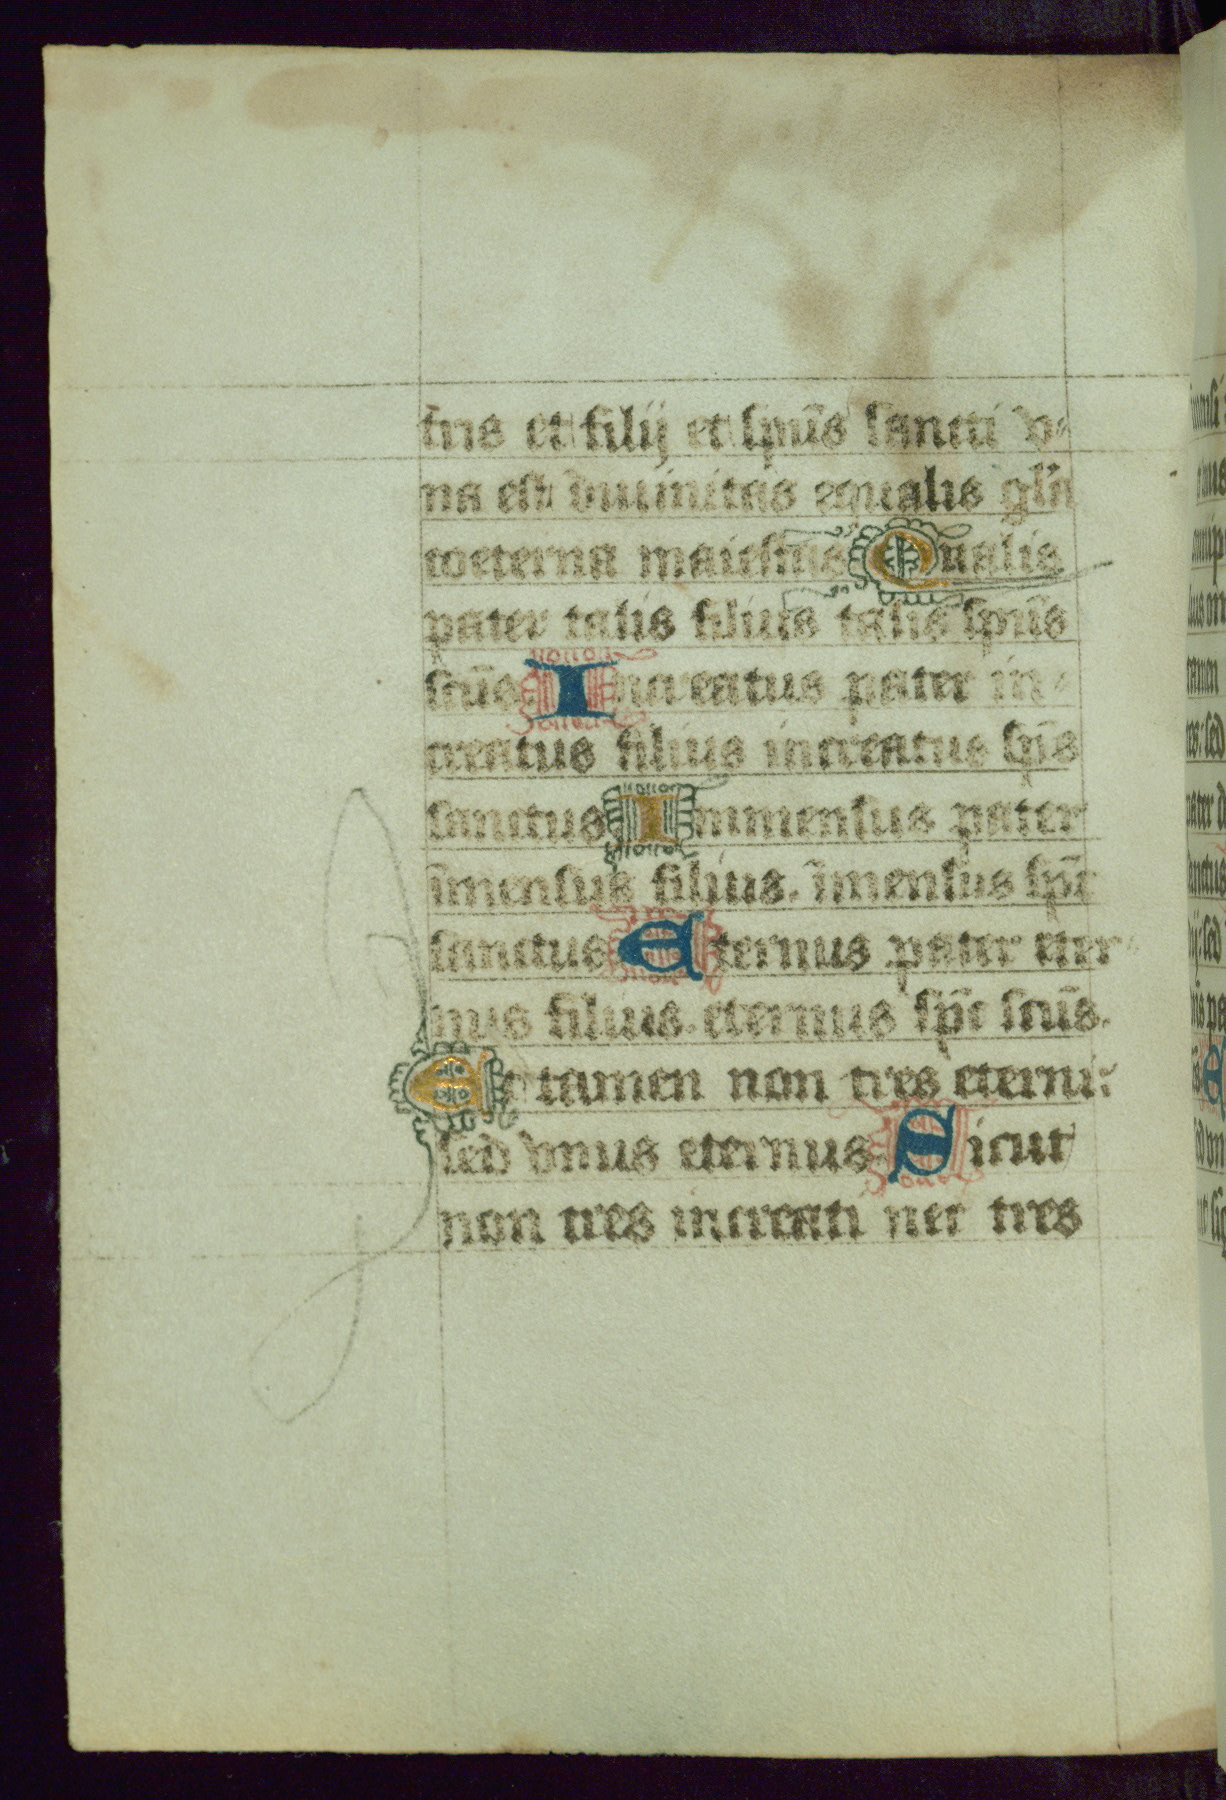 tris et filij et spūs sancti v-
na est diuinitas equalis glīa
coeterna maiestas Qualis
pater talis filius talis spūs
scūs Increatus pater in-
creatus filius increatus spūs
sanctus Inmensus pater
īmensus filius. īmensus spūs
sanctus Eternus pater eter-
nus filius. eternus spūs scūs.
Et tamen non tres eterni:
sed vnus eternus Sicut
non tres increati nec tres